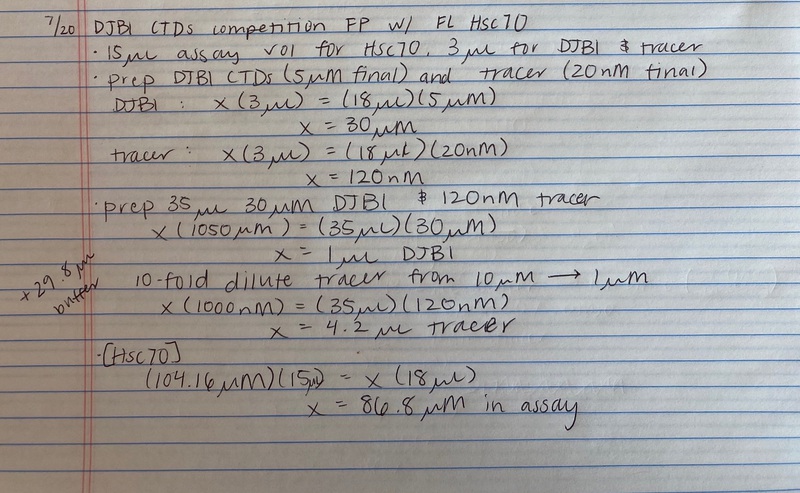 7/20 DJB1 CTDs competition FP w/ FL Hsc70
· 15 µL assay vol for Hsc70, 3 µL for DJB1 & tracer
· prep DJB1 CTDs (5 µM final) and tracer (20 nM final)
DJB1 : x (3 µL) = (18 µL)(5 µM)
x = 30 µM
tracer : x (3 µL) = (18 µL)(20 nM)
x = 120 nM
· prep 35 µL 30 µM DJB1 & 120 nM tracer
x (1050 µm) = (35 µL)(30 µM)
x = 1 µL DJB1
+ 29.8 µL buffer
10-fold dilute tracer from 10 µM → 1 µM
x (1000 nM) = (35 µL)(120 nM)
x = 4.2 µL tracer
· [Hsc70]
(104.16 µM)(15 µL) = x (18 µL)
x = 86.8 µM in assay